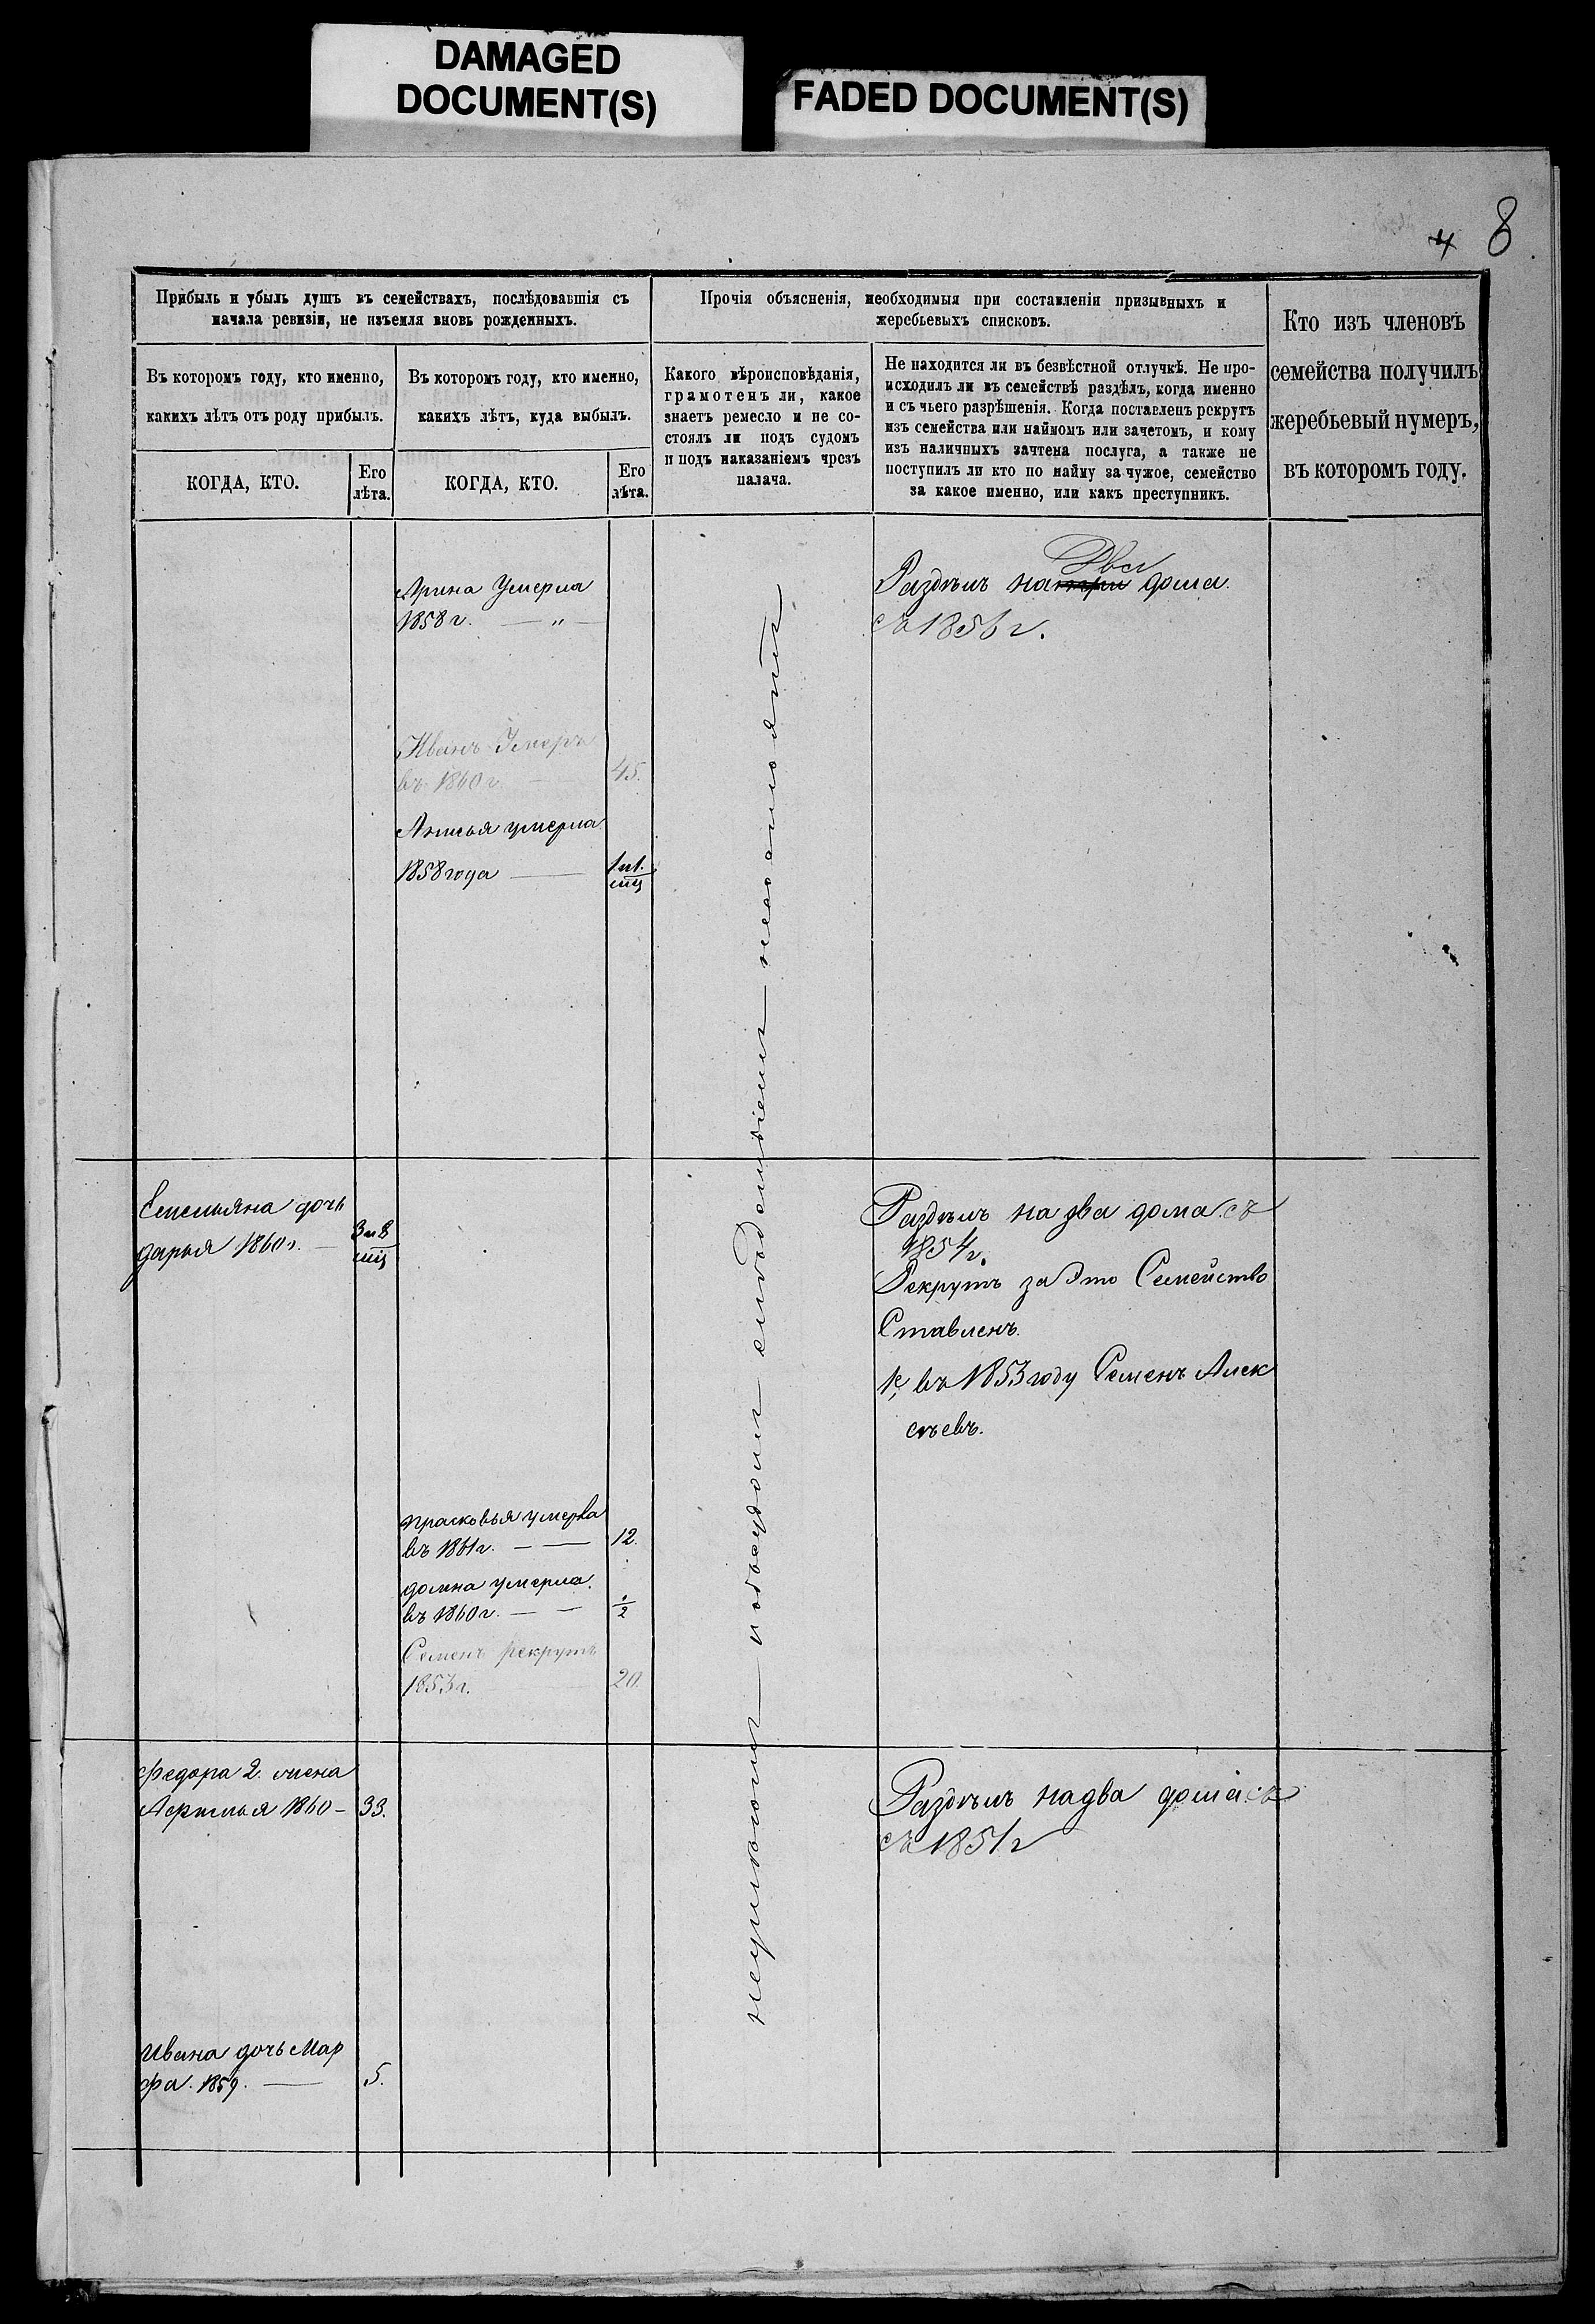 DAMAGED
DOCUMENT(S)
FADED DOCUMENT(S)
8
Прибыль и убыль душъ въ семействахъ, послѣдовавшія съ
начала ревизіи, не изъемля вновь рожденныхъ.
Въ которомъ году, кто именно,
какихъ лѣтъ отъ роду прибылъ.
КОГДА, КТО.
Его
лѣта.
Въ которомъ году, кто именно,
какихъ лѣтъ, куда выбылъ.
КОГДА, КТО.
Его
лѣта.
Прочія объясненія, необходимыя при составленіи призывныхъ и
жеребьевыхъ списковъ.
Какого вѣроисповѣданія,
грамотенъ ли, какое
знаетъ ремесло и не со-
стоялъ ли подъ судомъ
и подъ наказаніемъ чрезъ
палача.
Не находится ли въ безвѣстной отлучкѣ. Не про-
исходилъ ли въ семействѣ раздѣлъ, когда именно
и съ чьего разрѣшенія. Когда поставленъ рекрутъ
изъ семейства или наймомъ или зачетомъ, и кому
изъ наличныхъ зачтена послуга, а также не
поступилъ ли кто по найму за чужое, семейство
за какое именно, или какъ преступникъ.
Кто изъ членовъ
семейства получилъ
жеребьевый нумеръ,
въ которомъ году.
Арина Умерла
1858 г. — " —
Иванъ Умеръ
въ 1860 г. — 45.
Анисья умерла
1858 года —
Два
Раздѣлъ на три дома.
съ 1856 г.
Емельяна дочь
дарья 1860 г. —
Раздѣлъ на два дома съ
1854 г.
Рекрутъ за Это Семейство
Ставленъ.
въ 1853 году Семенъ Алек
сѣевъ.
прасковья умерла
въ 1861 г. — — 12.
домна умерла.
въ 1860 г. — —
Семенъ рекрутъ
1853 г. 20.
федора 2. жена
1860 — 33.
Раздѣлъ на два дома съ
съ 1851 г
Ивана дочь Мар
фа. 1859. — 5.